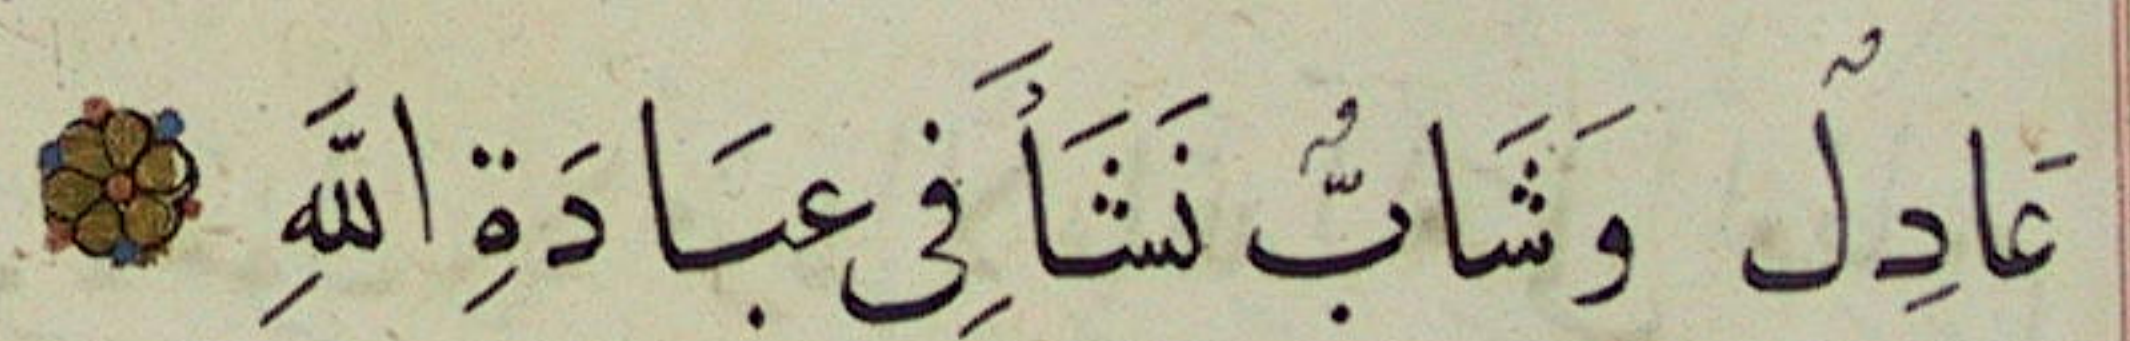 عَادِلٌ وَشَابٌّ نَشَأَ فِى عبَادَةِ اللَّهِ